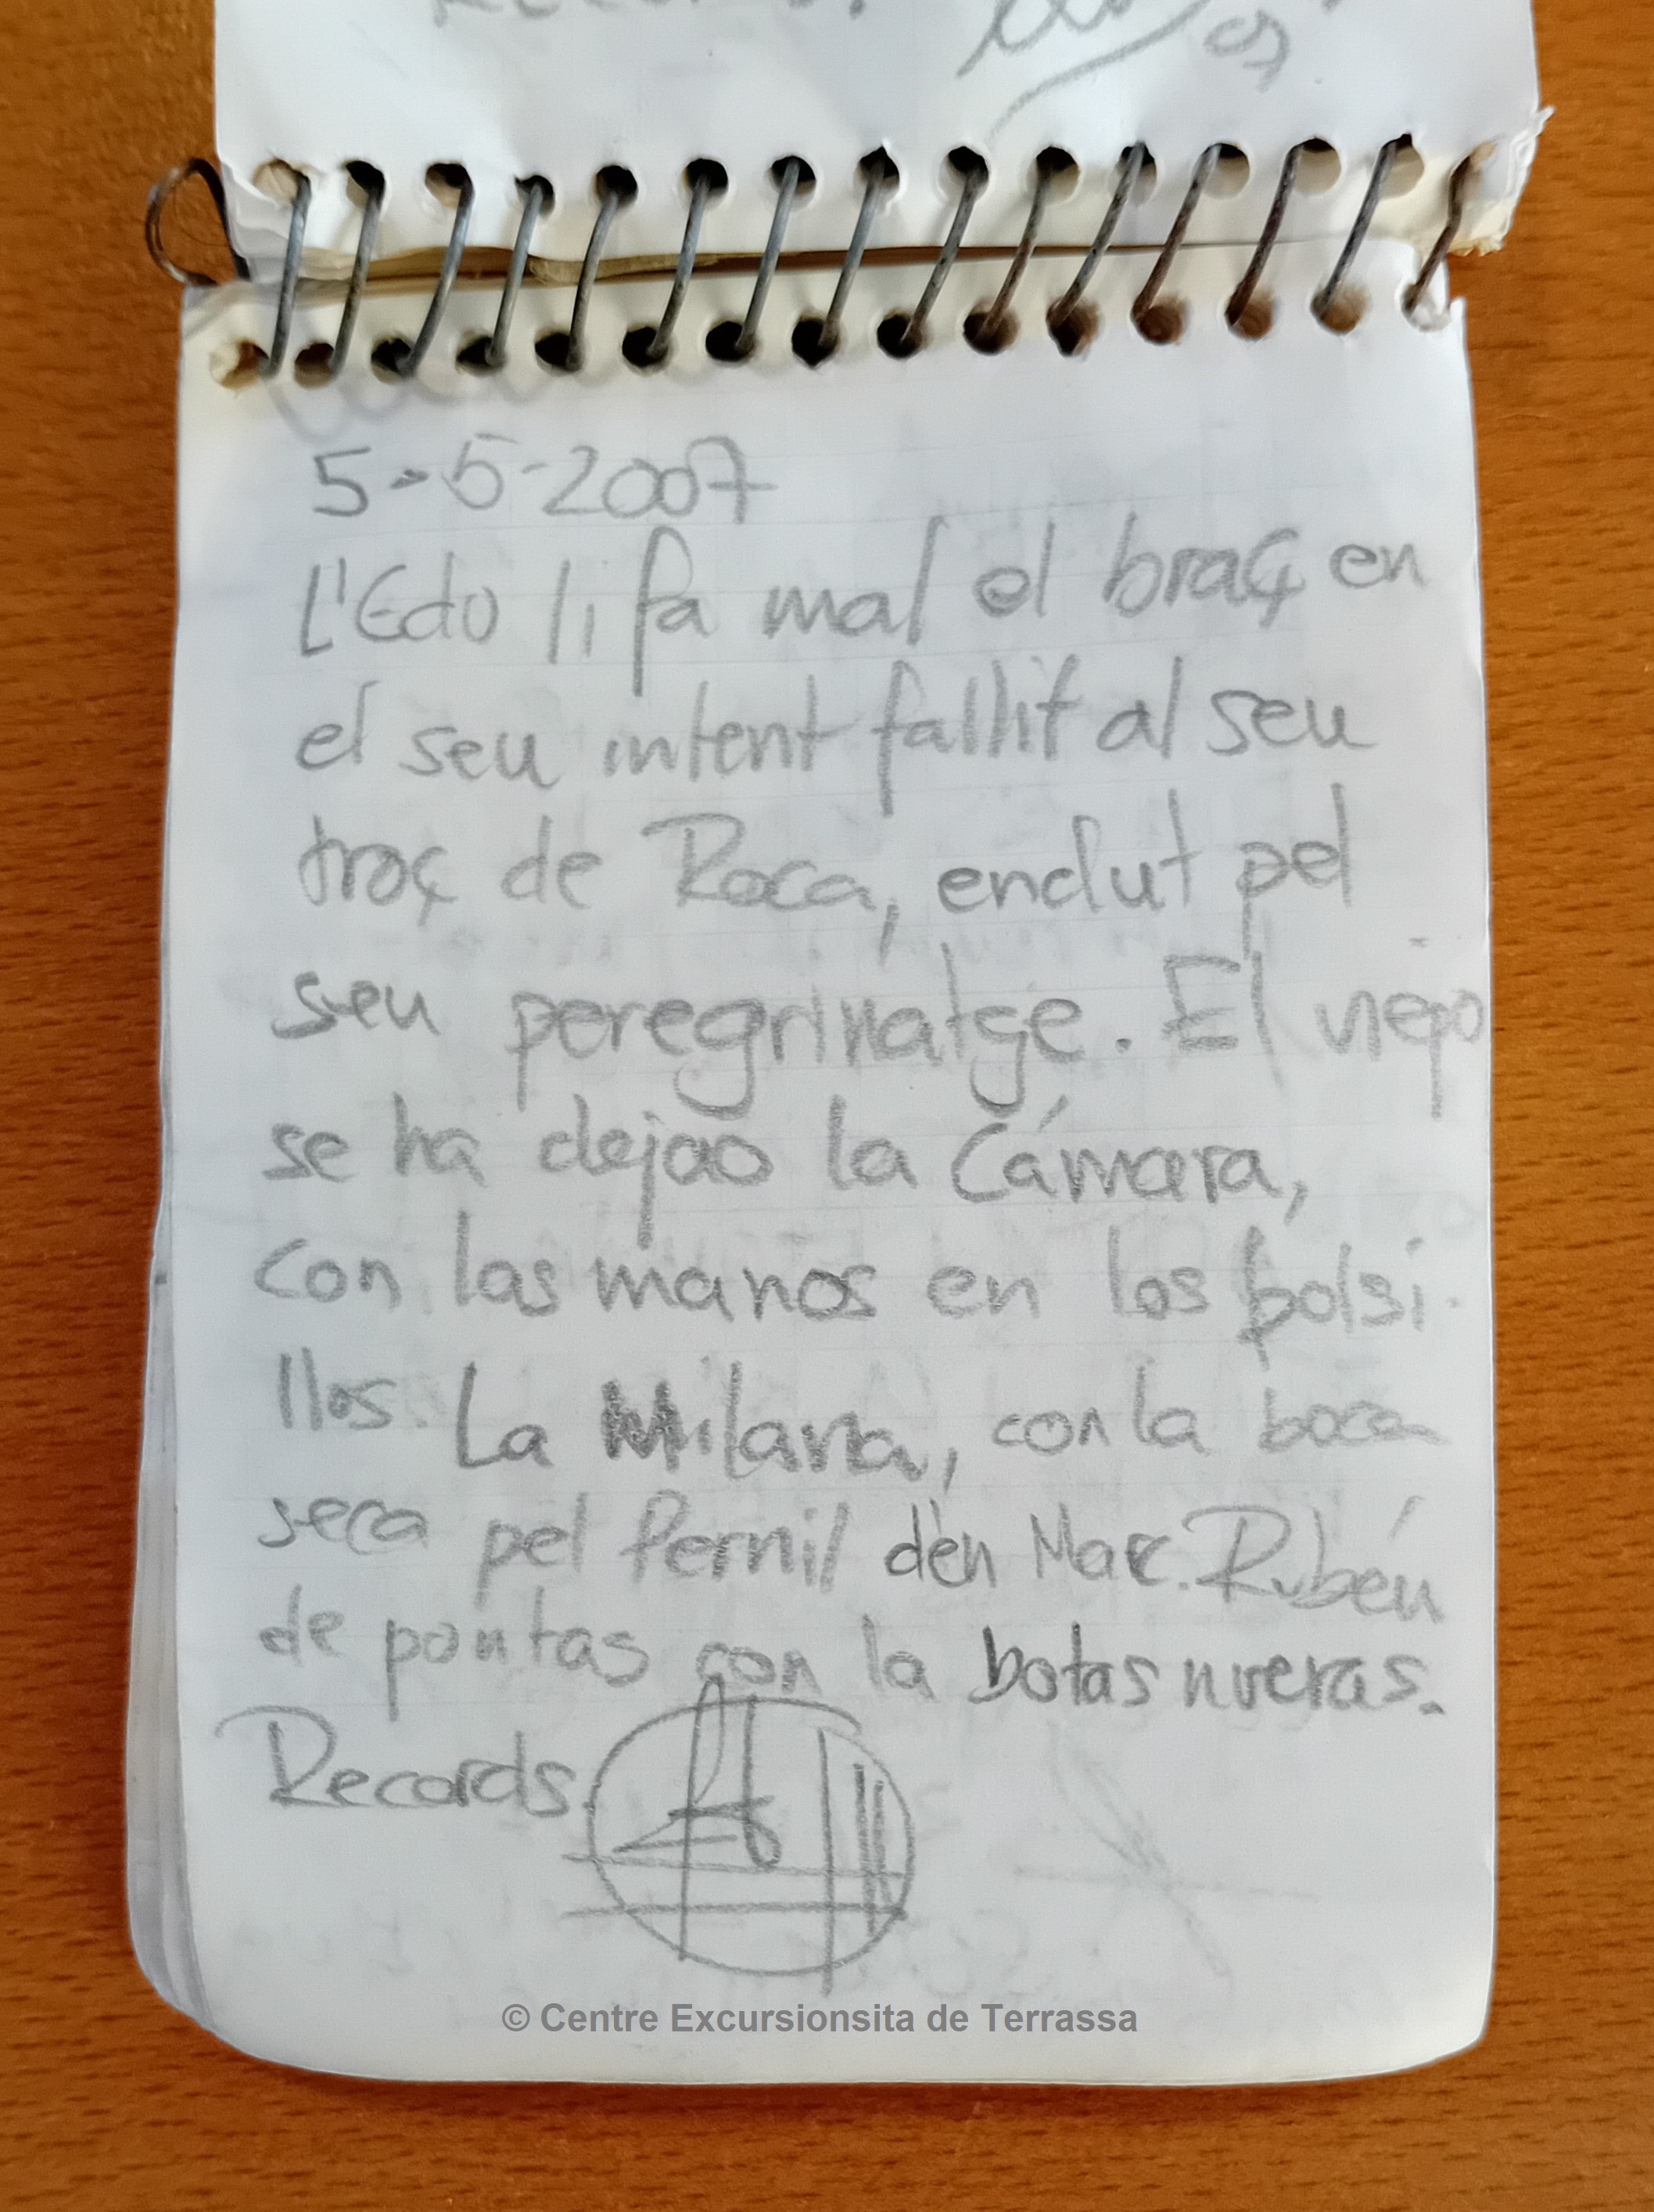 5-5-2007
L'Edu li fa mal el braç en
el seu intent fallit al seu
troç de Roca, enclut pel
seu peregrinatge. El viejo
se ha dejao la Cámara,
con las manos en los bolsi-
llos. La Milana, con la boca
seca pel Pernil d'en Marc. Rubén
de pontas con la botas nuevas.
Records.
© Centre Excursionsita de Terrassa